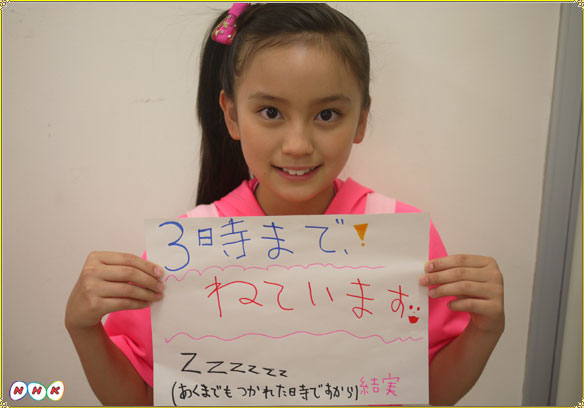 3時まで、!
ねています
ZZZZzzz
(あくまでもつかれた時ですから) 結実
NHK